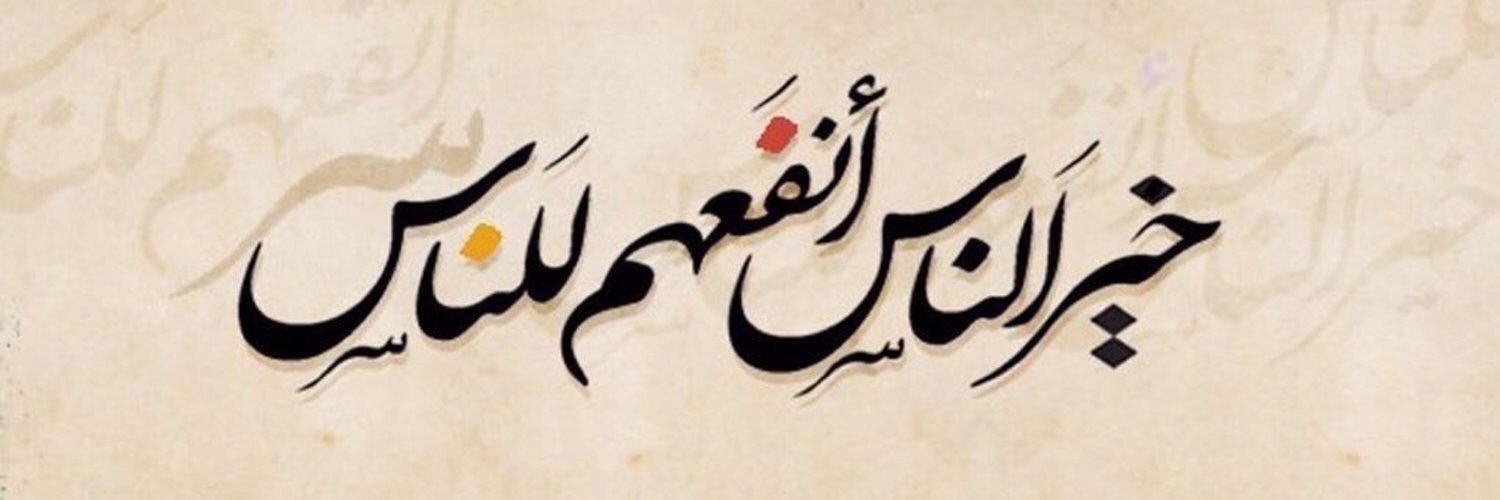 خير الناس أنفَعهم للناس